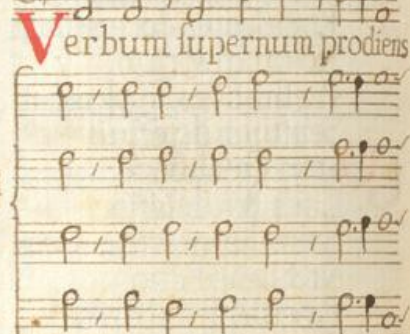 Verbum ſupernum prodiens